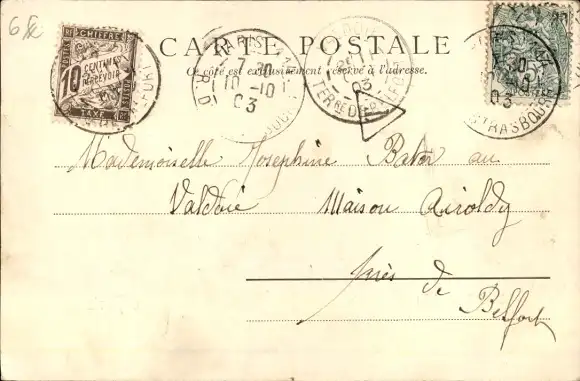 6
CARTE POSTALE
Ce côté est exclusivement réservé à l'adresse.
CHIFFRE
10
CENTIMES
A PERCEVOIR
TAXE
PARIS
7 30
10 - 10
03
TERRE DE
03
30
03
STRASBOURG
Mademoiselle Josephine Bator au
Valdoie Maison Airoldy
près de
Belfort